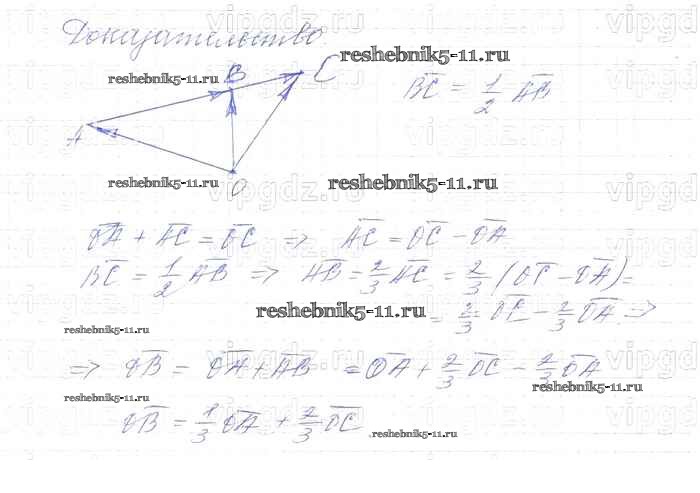 Доказательство
reshebnik5-11.ru
B C
reshebnik5-11.ru
BC = 1/2 AB
A
reshebnik5-11.ru
O
reshebnik5-11.ru
OA + AC = OC => AC = OC - OA
BC = 1/2 AB => AB = 2/3 AC = 2/3 (OC - OA) =
reshebnik5-11.ru
= 2/3 OC - 2/3 OA =>
reshebnik5-11.ru
=> OB = OA + AB = OA + 2/3 OC - 2/3 OA
reshebnik5-11.ru
reshebnik5-11.ru
OB = 1/3 OA + 2/3 OC
reshebnik5-11.ru